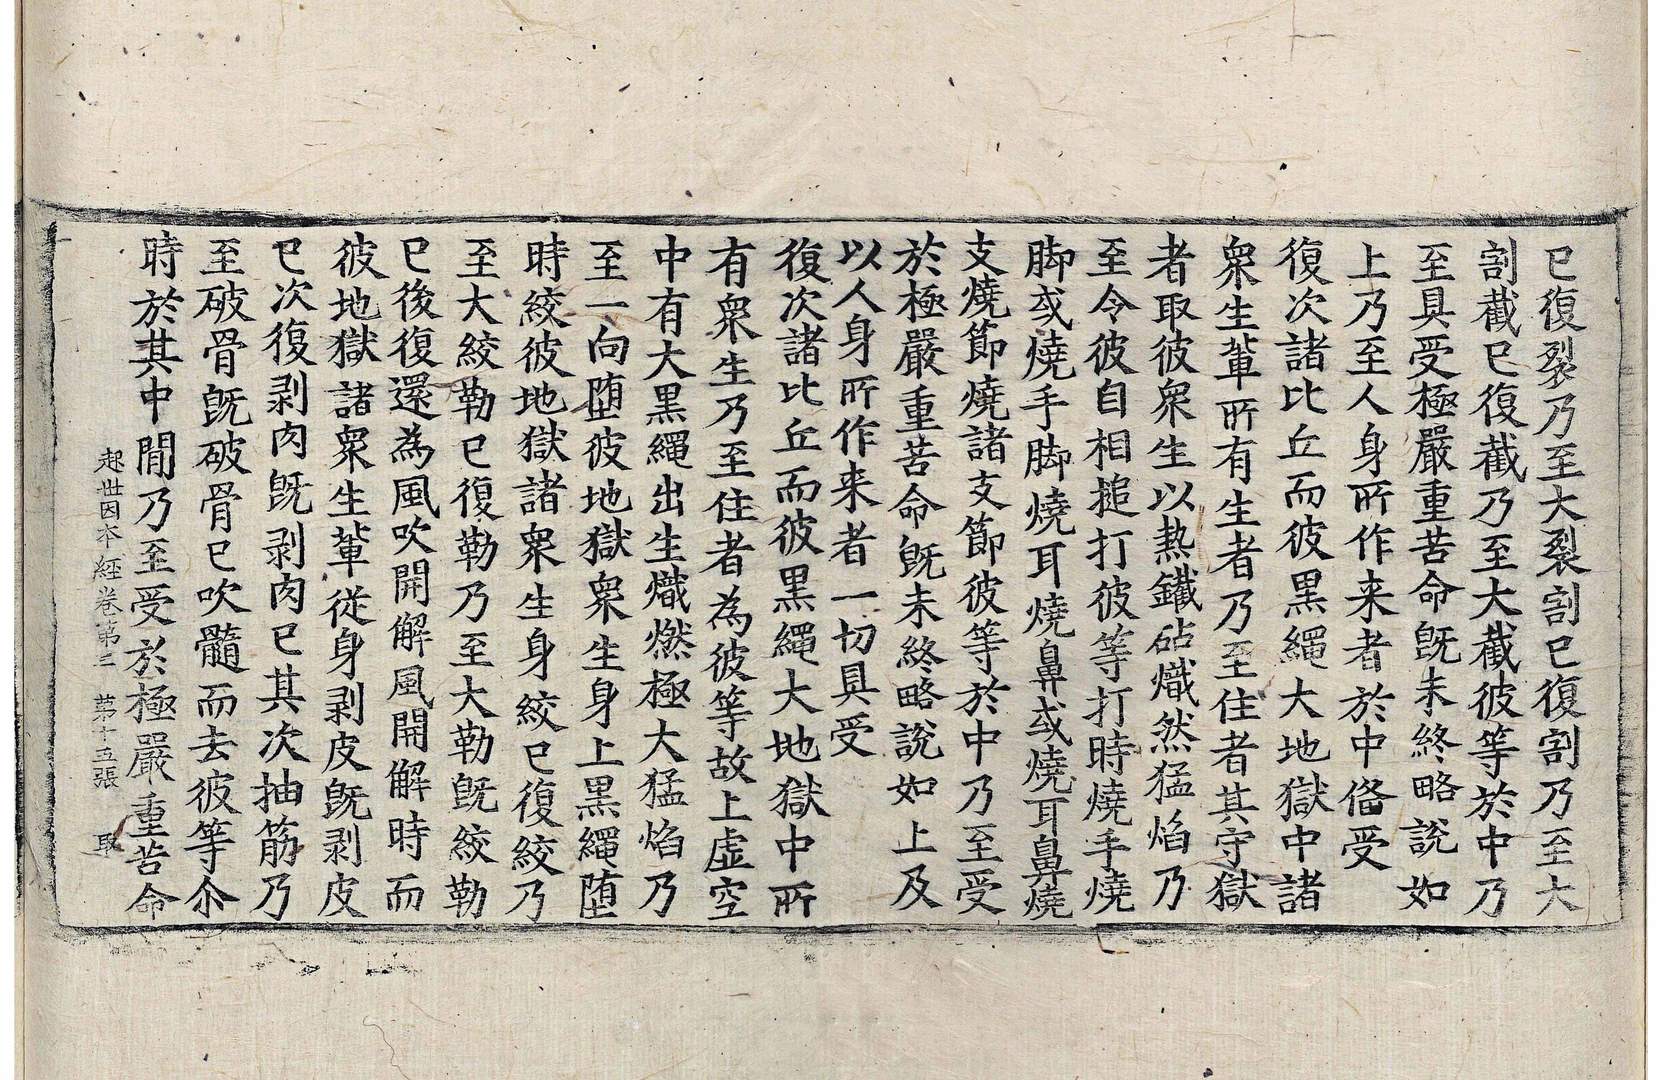 已復裂乃至大裂割已復割乃至大
割截已復截乃至大截彼等於中乃
至具受極嚴重苦命旣未終略說如
上乃至人身所作来者於中俻受
復次諸比丘而彼黒繩大地獄中諸
衆生軰所有生者乃至住者其守獄
者取彼衆生以熱鐵砧熾然猛焰乃
至令彼自相搥打彼等打時燒手燒
脚或燒手脚燒耳燒鼻或燒耳鼻燒
支燒節燒諸支節彼等於中乃至受
於極嚴重苦命旣未終略說如上及
以人身所作来者一切具受
復次諸比丘而彼黒繩大地獄中所
有衆生乃至住者為彼等故上虛空
中有大黒繩出生熾燃極大猛焰乃
至一向堕彼地獄衆生身上黒繩堕
時絞彼地獄諸衆生身絞已復絞乃
至大絞勒已復勒乃至大勒旣絞勒
已後復還為風吹開解風開解時而
彼地獄諸衆生軰從身剥皮旣剥皮
已次復剥肉旣剥肉已其次抽筋乃
至破骨旣破骨已吹髓而去彼等尒
時於其中間乃至受於極嚴重苦命
起世因本經卷第三　第十五張　取